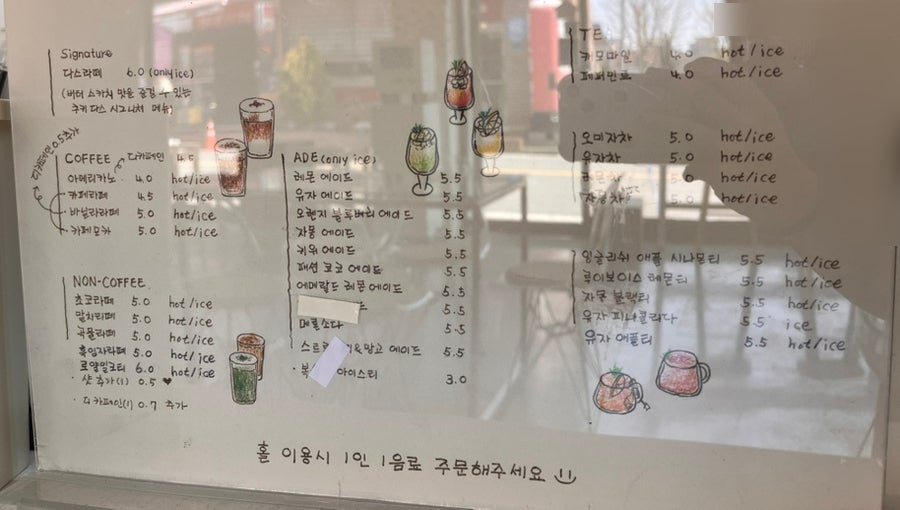 Signature
다스라떼 6.0 (only ice)
(버터 스카치 맛을 즐길 수 있는
쿠키 다스 시그니처 메뉴)
디카페인 0.5 추가
COFFEE 디카페인 4.5
아메리카노 4.0 hot/ice
카페라떼 4.5 hot/ice
바닐라라떼 5.0 hot/ice
카페모카 5.0 hot/ice
NON-COFFEE
초코라떼 5.0 hot/ice
말차라떼 5.0 hot/ice
곡물라떼 5.0 hot/ice
흑임자라떼 5.0 hot/ice
로얄밀크티 6.0 hot/ice
· 샷 추가(1) 0.5 ♥
· 디카페인(1) 0.7 추가
ADE (only ice)
레몬 에이드 5.5
유자 에이드 5.5
오렌지 블루베리 에이드 5.5
자몽 에이드 5.5
키위 에이드 5.5
패션 코코 에이드 5.5
에메랄드 레몬 에이드 5.5
5.5
메론소다 5.5
&망고 에이드 5.5
· 복 아이스티 3.0
TE
캐모마일 4.0 hot/ice
페퍼민트 4.0 hot/ice
오미자차 5.0 hot/ice
유자차 5.0 hot/ice
레몬차 5.0 hot/ice
자몽차 5.0 hot/ice
잉글리쉬 애플 시나몬티 5.5 hot/ice
루이보이스 레몬티 5.5 hot/ice
자몽 블랙티 5.5 hot/ice
유자 피나콜라다 5.5 ice
유자 애플티 5.5 hot/ice
홀 이용시 1인 1음료 주문해주세요